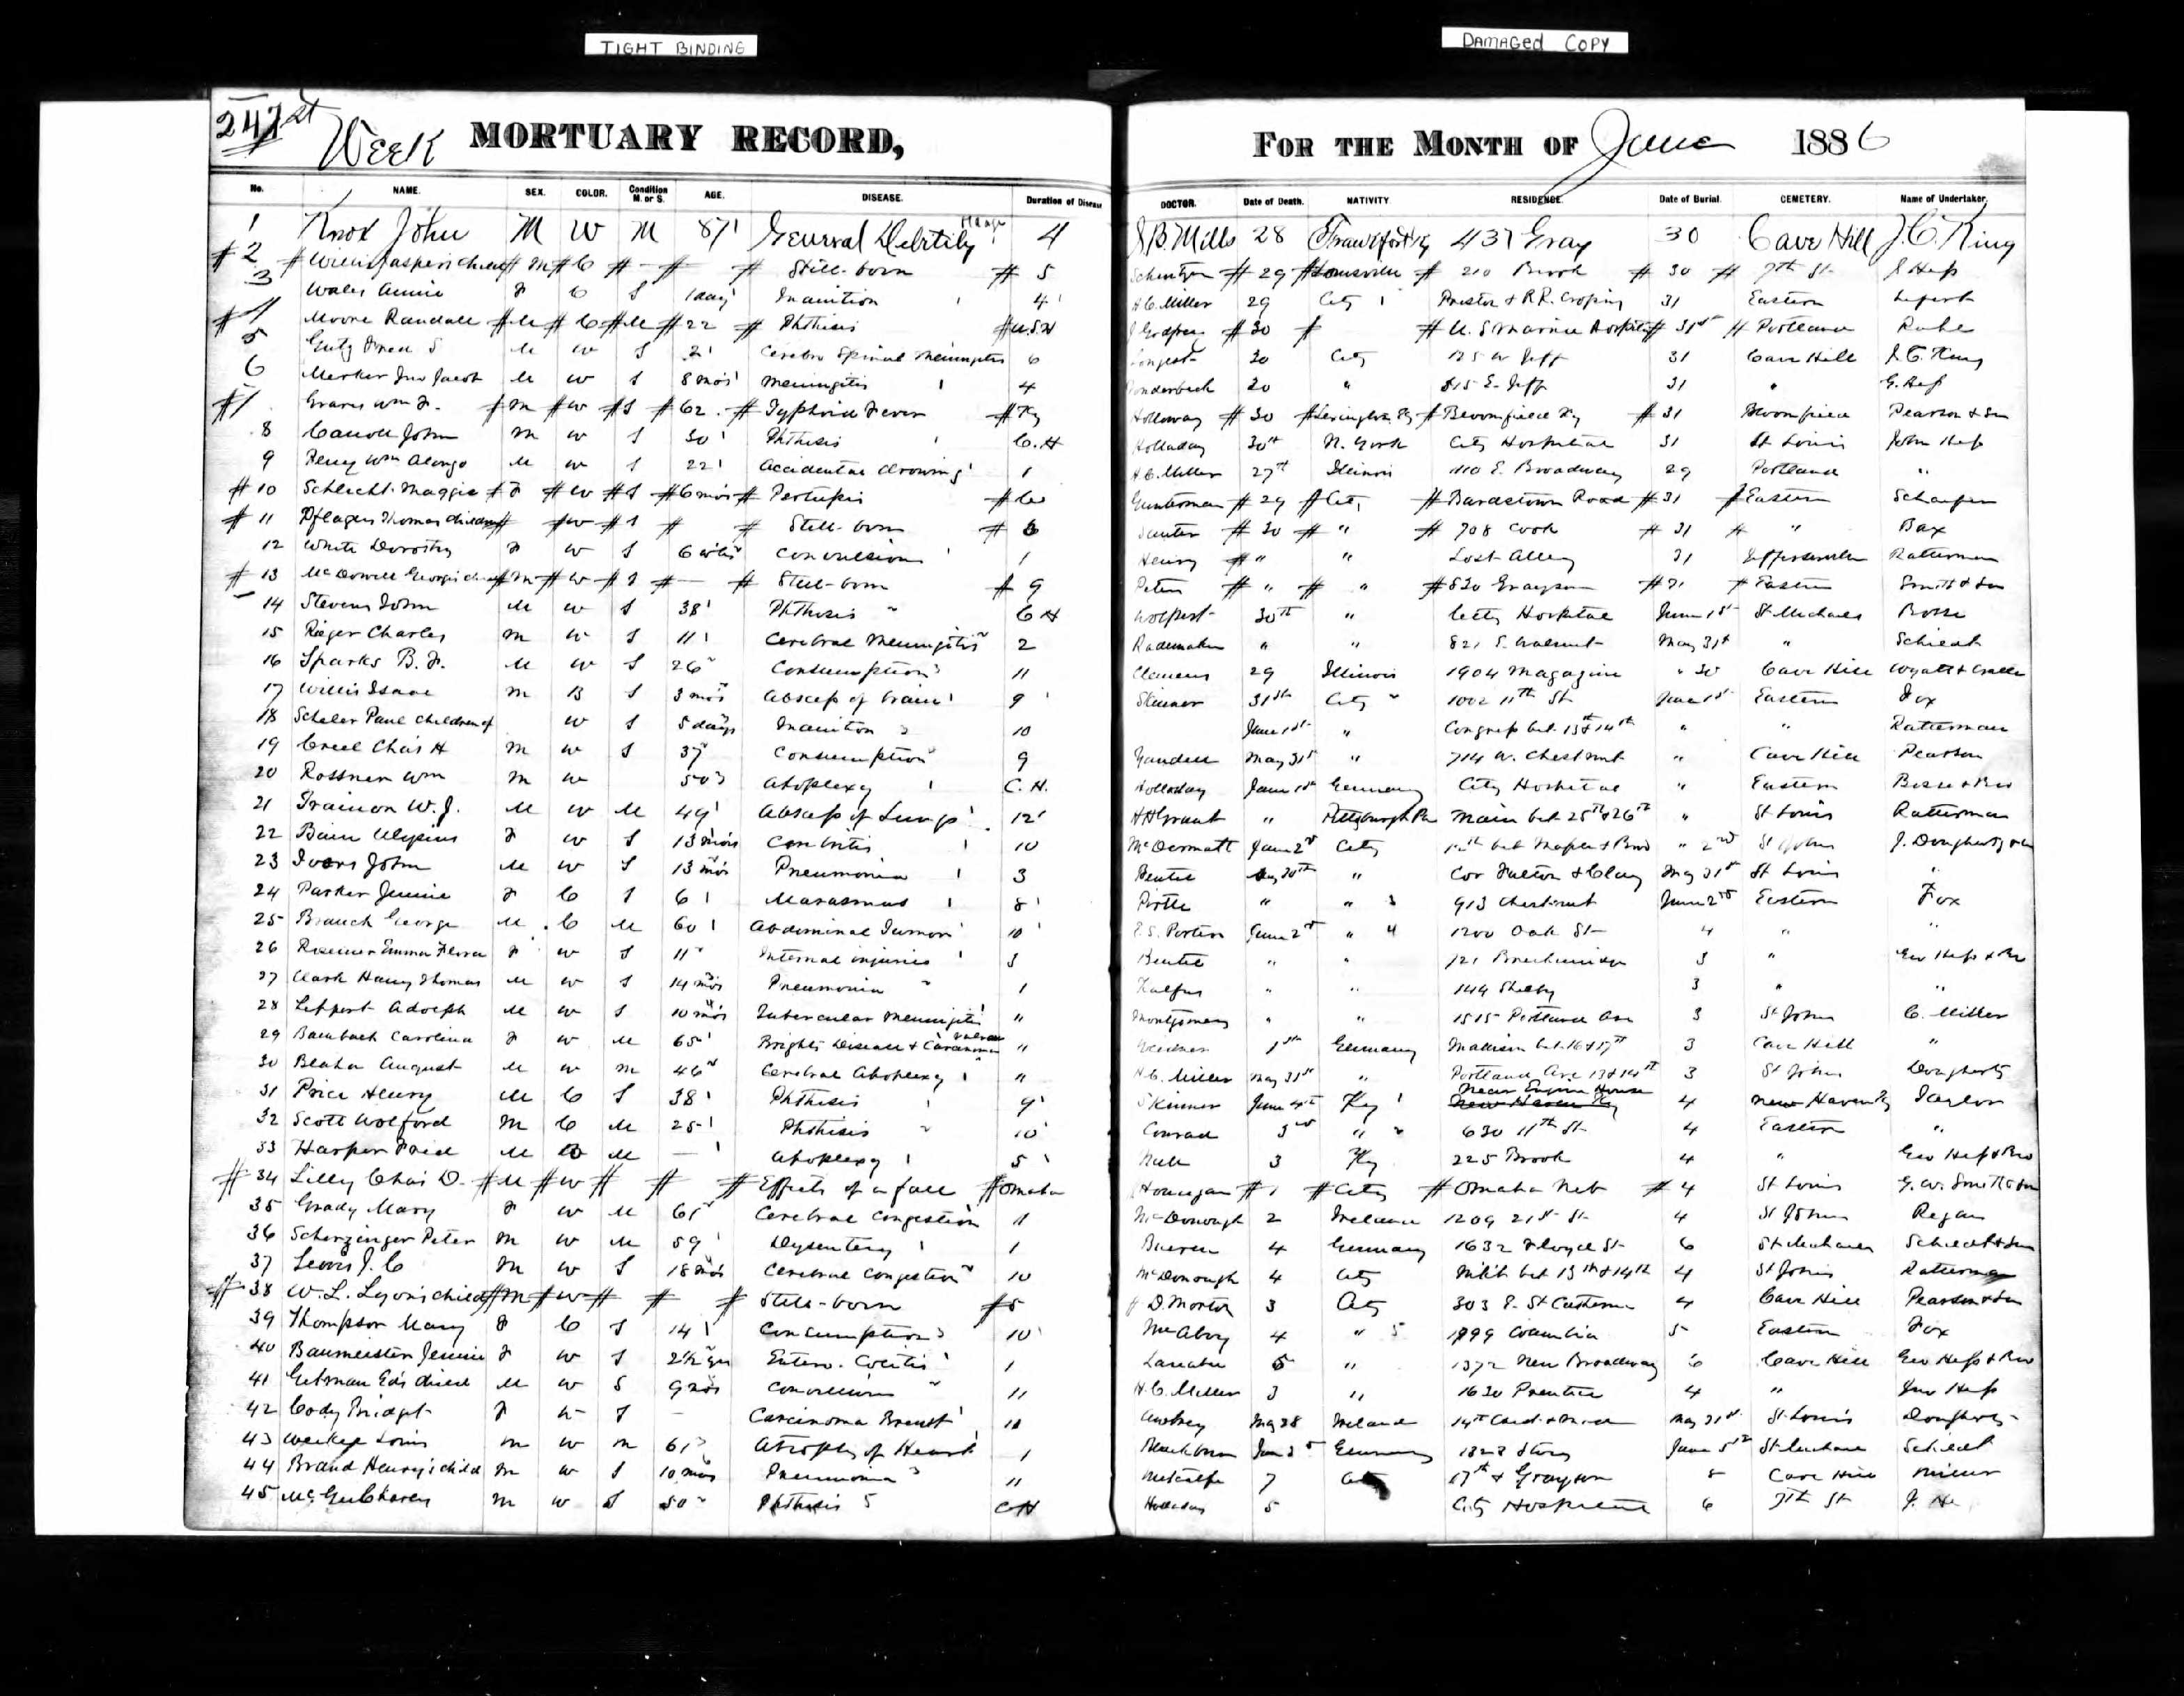 TIGHT BINDING
DAMAGED COPY
247st Week MORTUARY RECORD, FOR THE MONTH OF June 1886
No. NAME. SEX. COLOR. Condition M. or S. AGE. DISEASE. Duration of Disease DOCTOR. Date of Death. NATIVITY RESIDENCE. Date of Burial. CEMETERY. Name of Undertaker.
1 Knox John M W M 87 General Debility 4 J B Mills 28 Frankfort Ky 437 Gray 30 Cave Hill J. C. King
# 2 # Willis Jasper's child # M # C # - # # Still-born # 5 # 29 # Louisville # 210 Brook # 30 # 7th St J Hess
3 Wales Annie F C S 1 day Inanition 4 H C Miller 29 City Preston & R.R. Crossing 31 Eastern
# 4 Moore Randall # M # C # M # 22 # Phthisis # U.S.H J Godfrey # 30 # # U. S Marine Hospital # 31st # Portland
5 M W S 2 Cerebro Spinal Meningitis 6 30 City 125 W Jeff 31 Cave Hill J. C. King
6 Merker Jno Jacob M W S 8 mos Meningitis 4 30 " 815 E. Jeff 31 " G. Hess
# 7 Graves Wm F. # M # W # S # 62 # Typhoid Fever # Ky Holloway # 30 # Lexington Ky # Bloomfield Ky # 31 Bloomfield Pearson & Son
8 Carroll John M W S 30 Phthisis C. H Holladay 30th N. York City Hospital 31 St Louis John Hess
9 Perry Wm Alonzo M W S 22 Accidental drowning 1 H C. Miller 27th Illinois 1110 E. Broadway 29 Portland "
# 10 Schlecht Maggie # F # W # S # 6 mos # Pertussis # Co Gunterman # 29 # City # Bardstown Road # 31 # Eastern Schaefer
# 11 Pflager Thomas children # # W # S # # Still-born # 6 # 30 # " # 708 Cook # 31 # " Bax
12 White Dorothy F W S 6 wks Convulsions 1 Henry # " " Lost Alley 31 Jeffersonville Ratterman
# 13 McDowell George's child # M # W # S # — # Still-born # 9 Peter # " # " # 830 Grayson # 31 # Eastern Smith & Son
14 Stevens John M W S 38 Phthisis C H 30th " City Hospital June 1st St Michaels Bosse
15 Rieger Charles M W S 11 Cerebral Meningitis 2 Rademaker " " 821 E. Walnut May 31st " Schieat
16 Sparks B. F. M W S 26 Consumption 11 Clemens 29 Illinois 1904 Magazine " 30 Cave Hill Wyatt &
17 Willis Isaac M B S 3 mos Abscess of brain 9 Skinner 31st City 1002 11th St June 1st Eastern Fox
18 Scheler Paul children of W S 5 days Inanition 10 June 1st " Congress bet. 13 & 14th " " Ratterman
19 Creel Chas H M W S 37 Consumption 9 Yandell May 31st " 714 W. Chestnut " Cave Hill Pearson
20 Rossner Wm M W 50 Apoplexy C. H. Holladay June 1st Germany City Hospital " Eastern Bosse & Bro
21 Trainor W. J. M W M 49 Abscess of Lungs 12 H H Grant " Pittsburgh Pa Main bet 25th & 26th " St Louis Ratterman
22 Bain F W S 13 mos 10 McDermott June 2d City " 2nd St Johns J. Dougherty
23 Ivers John M W S 13 mos Pneumonia 3 Beutel May 30th " Cor Fulton & Clay May 31st St Louis "
24 Parker Jennie F C S 6 Marasmus 8 " " 913 Chestnut June 2d Eastern Fox
25 Branch George M C M 60 Abdominal Tumor 10 E. S. Porter June 2d " 1200 Oak St 4 " "
26 Emma Flora F W S 11 Internal injuries 3 Beutel " " 121 Breckinridge 3 " Geo Hess & Bro
27 Clark Harry Thomas M W S 14 mos Pneumonia 1 Kalfus " " 149 Shelby 3 " "
28 Leppert Adolph M W S 10 mos Tubercular Meningitis " Montgomery " " 1515 Portland Ave 3 St Johns C. Miller
29 Baumbach Carolina F W M 65 Brights Disease & Carcinoma " 1st Germany Madison bet. 16 & 17th 3 Cave Hill "
30 Blaha August M W M 46 Cerebral Apoplexy " H. C. Miller May 31st " Portland Ave 13 & 14th 3 St Johns Dougherty
31 Price Henry M C S 38 Phthisis 9 Skinner June 4th Ky Near Engine House New Haven Ky 4 New Haven Ky Taylor
32 Scott Wolford M C M 25 Phthisis 10 Conrad 3rd " 630 11th St 4 Eastern "
33 Harper M B M — Apoplexy 5 3 Ky 225 Brook 4 " Geo Hess & Bro
# 34 Lilly Chas D. # M # W # # # Effects of a fall # Omaha # 1 # City # Omaha Neb # 4 St Louis G. W. Smith & Son
35 Grady Mary F W M 65 Cerebral Congestion 1 McDonough 2 Ireland 1209 21st St 4 St Johns Regan
36 Scherzinger Peter M W M 59 Dysentery 1 4 Germany 1632 Floyd St 6 St Michaels
37 Lewis J. C M W S 18 mos Cerebral Congestion 10 McDonough 4 City bet 13th & 14th 4 St Johns Ratterman
# 38 W. L. Lyons child # M # W # # # Still-born # 5 D. Morton 3 City 303 E. St Catherine 4 Cave Hill Pearson & Son
39 Thompson Mary F C S 14 Consumption 10 4 " 1999 Columbia 5 Eastern Fox
40 Baumeister Jennie F W S 2½ yrs Entero-Colitis 1 5 " 1372 New Broadway 6 Cave Hill Geo Hess & Bro
41 Gutman Ed's child M W S 9 mos Convulsions 11 H. C. Miller 3 " 1630 Prentice 4 " Jno Hess
42 Cody Bridget F W S — Carcinoma Breast 10 May 28 Ireland May 31st St. Louis Dougherty
43 Louis M W M 61 Atrophy of Heart 1 Blackburn June 3d Germany June 5th St Michael
44 Brand Henry's child M W S 10 mos Pneumonia 11 Metcalfe 7 City 17th & Grayson 8 Cave Hill Miller
45 M W S 50 Phthisis C H Holladay 5 City Hospital 6 7th St J. He